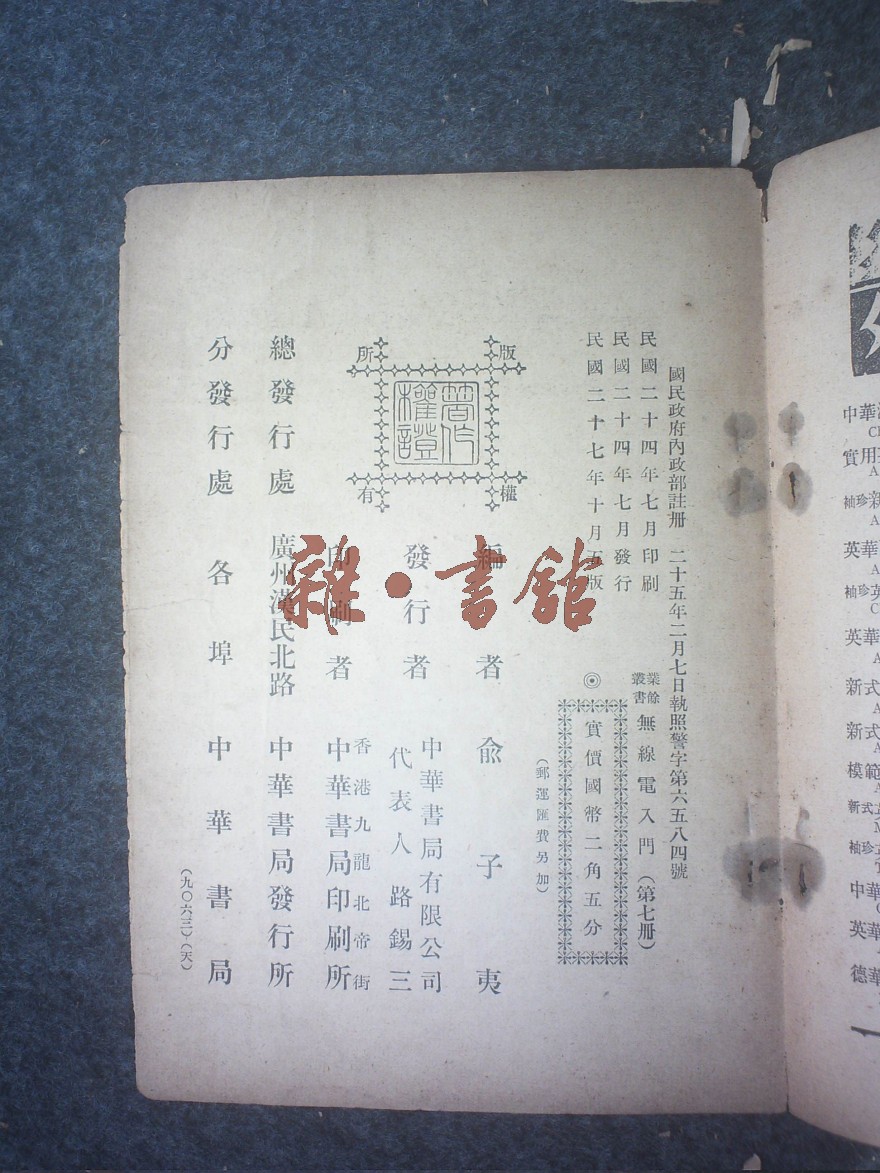 國民政府內政部註冊 二十五年二月七日執照警字第六五八四號
民國二十四年七月印刷
民國二十四年七月發行
民國二十七年十月五版
業餘叢書 無線電入門(第七冊)
◎ 實價國幣二角五分
(郵運匯費另加)
版權所有
著作權證
編者 俞子夷
發行者 中華書局有限公司
代表人 路錫三
印刷者 香港九龍北帝街
中華書局印刷所
總發行處 廣州漢民北路 中華書局發行所
分發行處 各埠 中華書局
(九〇六三)(天)
雜·書館
中華
實用
袖珍新
英華
袖珍英
英華
新式
新式
模範
新式
袖珍
中華
英華
德華